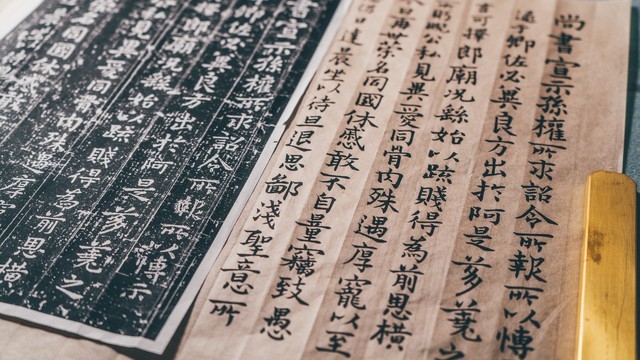 尚書宣示孫權所求詔令所報所以博
逮于卿佐必冀良方出於阿是芻蕘之
言可擇郎廟況繇始以疏賤得為前恩橫
睨公私見異愛同骨肉殊遇厚寵以至
日再世榮名同國休慼敢不自量竊致愚
日達晨坐以待旦退思鄙淺聖意所
書宣示孫權所求詔令所報所以博示
卿佐必冀良方出於阿是芻蕘之
郎廟況繇始以疏賤得為前恩橫
見異愛同骨肉殊遇厚
名同國休慼敢